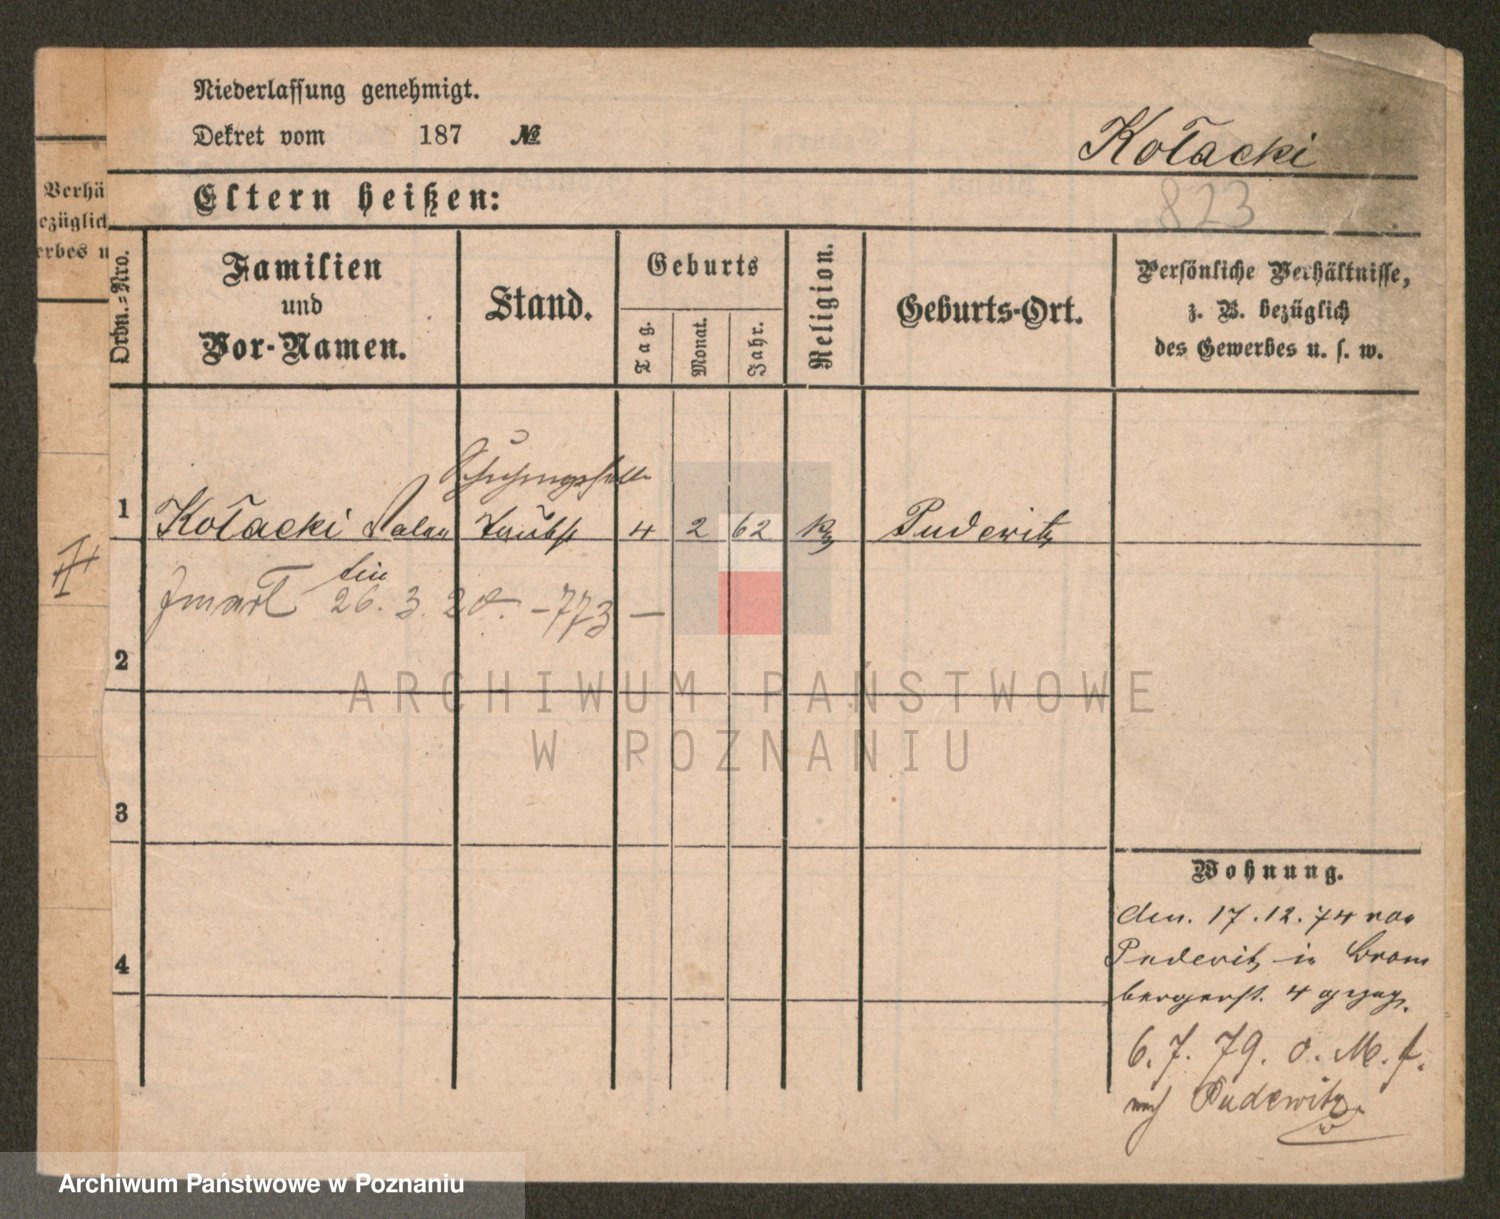 Niederlassung genehmigt.
Dekret vom 187 №
Kołacki
823
Eltern heißen:
Verhä
ezüglich
erbes u
Ordn.-Nro.
Familien
und
Vor-Namen.
Stand.
Geburts
Tag.
Monat.
Jahr.
Religion.
Geburts-Ort.
Persönliche Verhältnisse,
z. B. bezüglich
des Gewerbes u. s. w.
1 Kołacki Valen tin 4 2 62 Pudewitz
Zmarł 26. 3. 20. - 773 -
2
3
4
Wohnung.
den. 17. 12. 74 von
Pudewitz in Brom
bergerst. 4
6. 7. 79. o. M. f.
nach Pudewitz.
ARCHIWUM PAŃSTWOWE
W POZNANIU
Archiwum Państwowe w Poznaniu